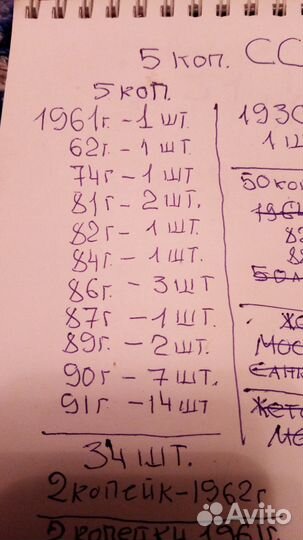 5 коп. СС
5 коп.
1961г - 1 шт.
62г - 1 шт.
74г - 1 шт
81г - 2 шт.
82г - 1 шт.
84г - 1 шт.
86г - 3 шт
87г - 1 шт.
89г - 2 шт.
90г - 7 шт.
91г - 14 шт
34 шт.
2 копейк - 1962г.
2 копейки 1961г.
1930
1 ш
50 ко
196
82
50
Мос
Санк
Жет
Ме
Avito